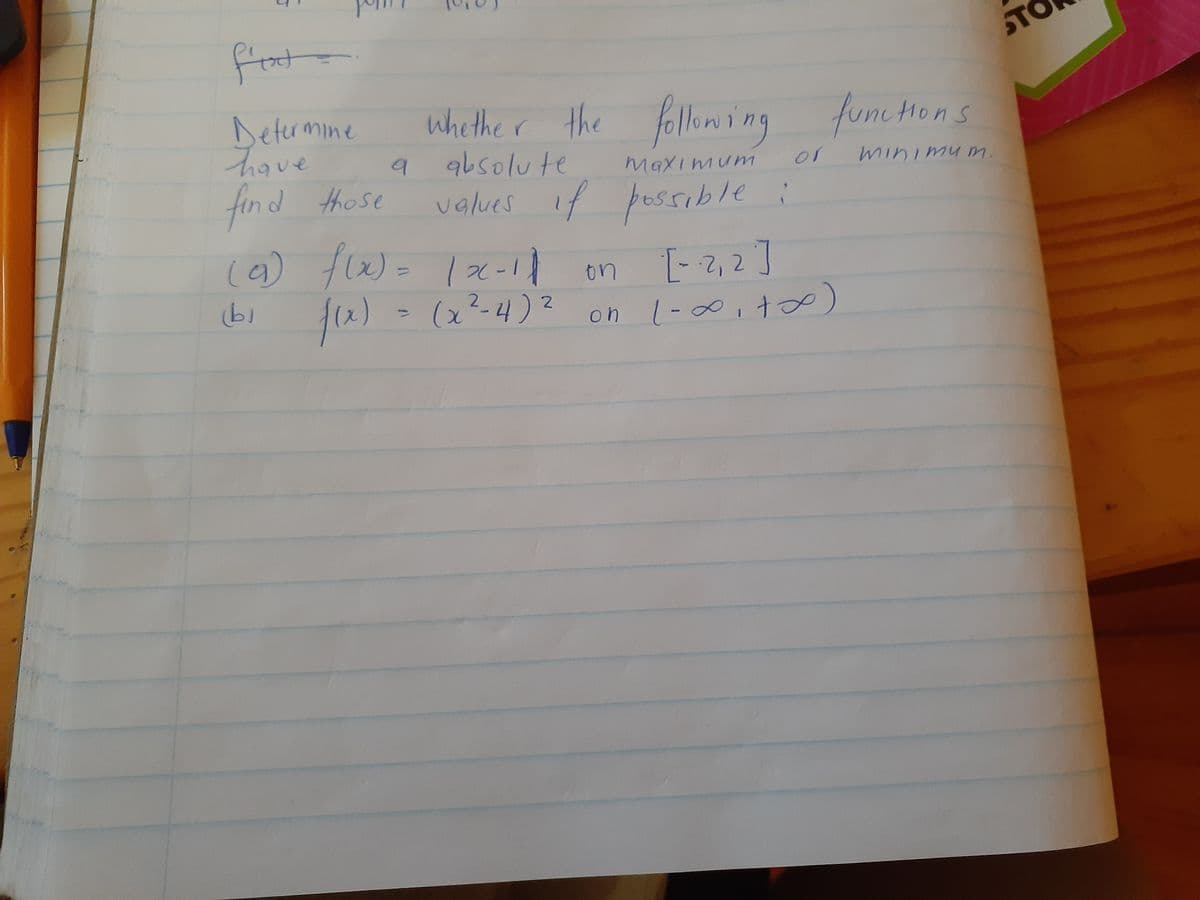 f'(x) =
Determine whether the following functions
have a absolute maximum or minimum.
find those values if possible :
(a) f(x) = |x-1| on [-2,2]
(b) f(x) = (x²-4)² on (-∞,+∞)